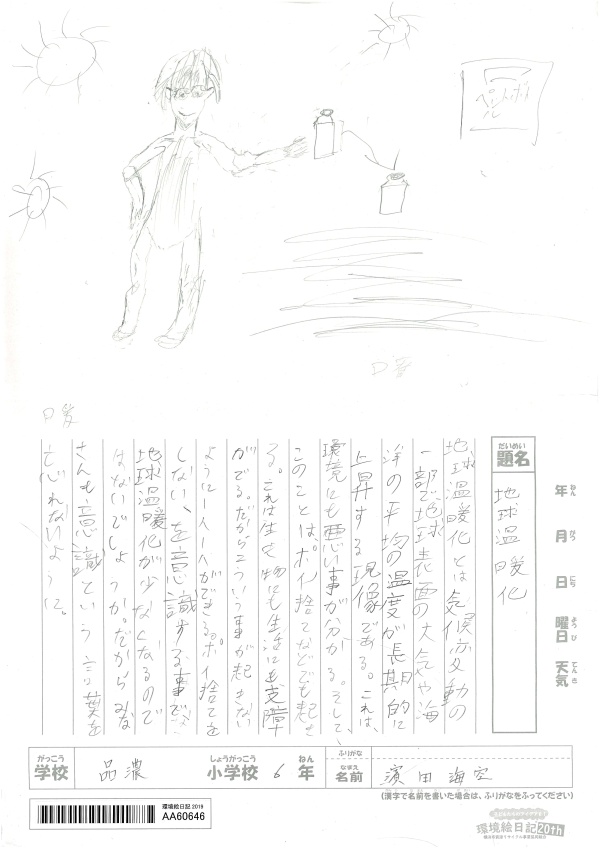 ペットボトル
口暖
口暖
だいめい
題名
地球温暖化
年 ねん
月 がつ
日 にち
曜日 ようび
天気 てんき
地球温暖化とは気候変動の
一部で地球表面の大気や海
洋の平均の温度が長期的に
上昇する現像である。これは、
環境にも悪い事が分かる。そして、
このことは、ポイ捨てなどでも起き
る。これは生き物にも生活にも支障
がでる。だからこういう事が起きない
ように一人一人ができる。ポイ捨てを
しない、を意識する事で、
地球温暖化が少なくなるので
はないでしょうか。だからみな
さんも意識という言葉を
忘れないように。
がっこう
学校
品濃
しょうがっこう
小学校
6
ねん
年
ふりがな
なまえ
名前
濱田海空
(漢字で名前を書いた場合は、ふりがなをふってください)
環境絵日記 2019
AA60646
環境絵日記20th